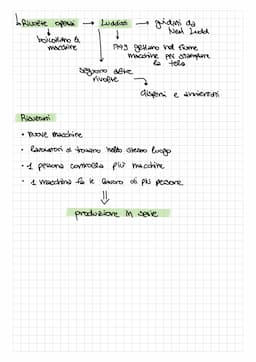 ↳ Rivolte operai → Luddisti → guidati da
Ned Ludd
boicottano le
macchine
1779 gettano nel fiume
macchine per stampare
la tela
seguono altre
rivolte
dispersi e
Riassumi
• nuove macchine
• lavoratori si trovano nello stesso luogo
• 1 persona controlla più macchine
• 1 macchina fa il lavoro di più persone
⇓
produzione in serie